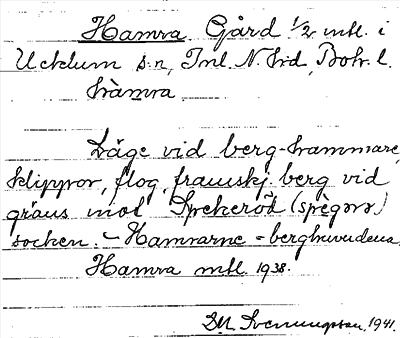 Hamra. Gård 1/2 mtl. i
Ucklum s:n, Inl. N. Hrd, Boh. l.
hàmra
Läge vid berg-hammare,
klippor, flog, framskj. berg vid
gräns mot Spekeröd (spègərə)
socken. - Hamrarne - berghuvudena.
Hamra mtl. 1938.
Svenungsson, 1941.